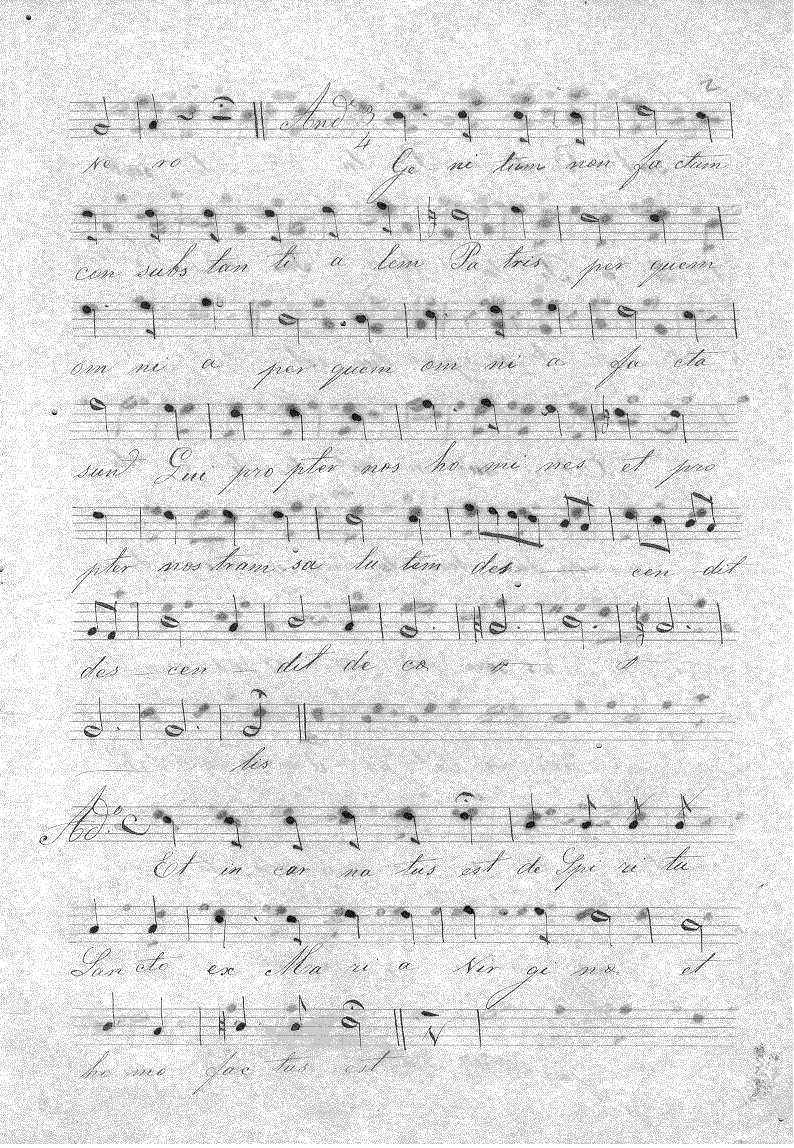 2
And.te 3/4
ve ro Ge ni tum non fa ctum
con subs tan ti a lem Pa tris per quem
om ni a per quem om ni a fa cta
sund Qui pro pter nos ho mi nes et pro
pter nos tram sa lu tem des — cen dit
des — cen — dit de cœ
lis
Ad.o C
Et in car na tus est de Spi ri tu
San cto ex Ma ri a Vir gi ne et
ho mo fac tus est